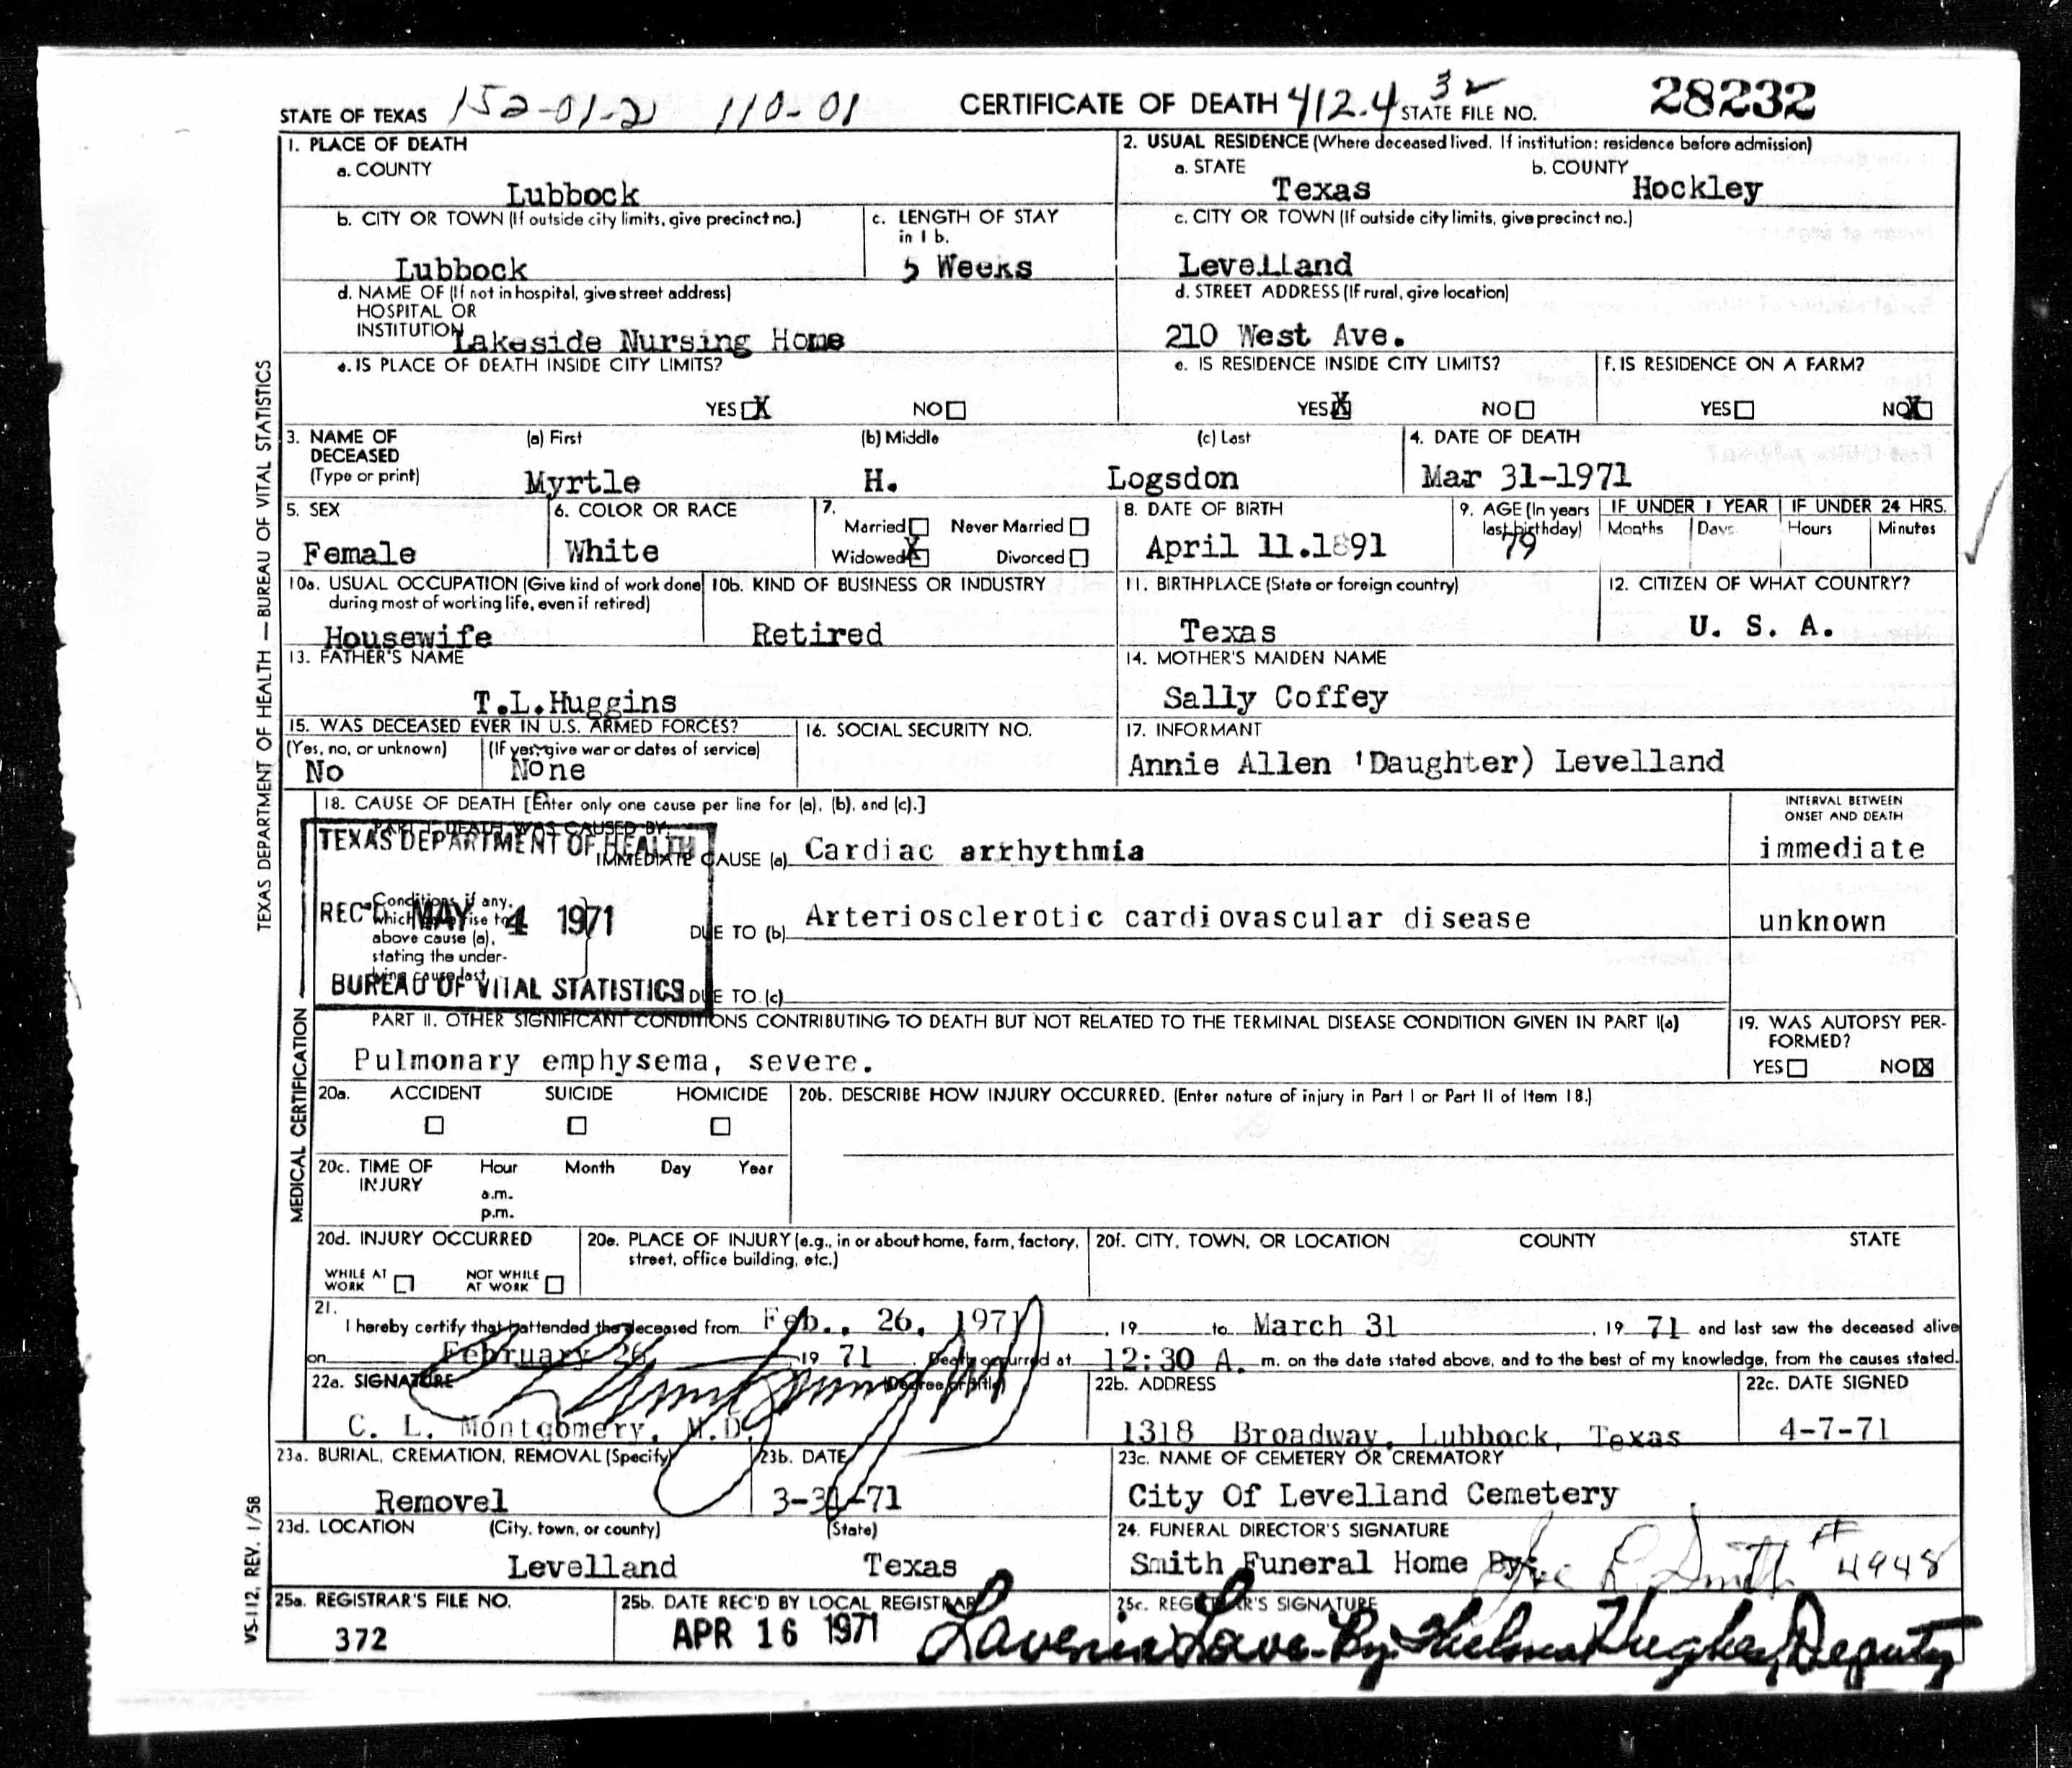 STATE OF TEXAS 152-01-21 110-01 CERTIFICATE OF DEATH 412.4 32 STATE FILE NO. 28232
1. PLACE OF DEATH
a. COUNTY
Lubbock
2. USUAL RESIDENCE (Where deceased lived. If institution: residence before admission)
a. STATE b. COUNTY
Texas Hockley
b. CITY OR TOWN (If outside city limits, give precinct no.)
Lubbock
c. LENGTH OF STAY
in 1 b.
5 Weeks
c. CITY OR TOWN (If outside city limits, give precinct no.)
Levelland
d. NAME OF (If not in hospital, give street address)
HOSPITAL OR
INSTITUTION Lakeside Nursing Home
d. STREET ADDRESS (If rural, give location)
210 West Ave.
e. IS PLACE OF DEATH INSIDE CITY LIMITS?
YES X NO
e. IS RESIDENCE INSIDE CITY LIMITS?
YES X NO
f. IS RESIDENCE ON A FARM?
YES NO X
3. NAME OF
DECEASED
(Type or print)
(a) First (b) Middle (c) Last
Myrtle H. Logsdon
4. DATE OF DEATH
Mar 31-1971
5. SEX
Female
6. COLOR OR RACE
White
7.
Married Never Married
Widowed X Divorced
8. DATE OF BIRTH
April 11.1891
9. AGE (In years
last birthday)
79
IF UNDER 1 YEAR IF UNDER 24 HRS.
Months Days Hours Minutes
10a. USUAL OCCUPATION (Give kind of work done
during most of working life, even if retired)
Housewife
10b. KIND OF BUSINESS OR INDUSTRY
Retired
11. BIRTHPLACE (State or foreign country)
Texas
12. CITIZEN OF WHAT COUNTRY?
U. S. A.
13. FATHER'S NAME
T.L.Huggins
14. MOTHER'S MAIDEN NAME
Sally Coffey
15. WAS DECEASED EVER IN U.S. ARMED FORCES?
(Yes, no, or unknown) (If yes, give war or dates of service)
No None
16. SOCIAL SECURITY NO.
17. INFORMANT
Annie Allen 'Daughter) Levelland
18. CAUSE OF DEATH [Enter only one cause per line for (a), (b), and (c).]
INTERVAL BETWEEN
ONSET AND DEATH
PART I. DEATH WAS CAUSED BY:
TEXAS DEPARTMENT OF HEALTH
IMMEDIATE CAUSE (a) Cardiac arrhythmia immediate
Conditions, if any,
which gave rise to
above cause (a),
stating the under-
lying cause last.
REC'D MAY 4 1971
BUREAU OF VITAL STATISTICS
DUE TO (b) Arteriosclerotic cardiovascular disease unknown
DUE TO (c)
PART II. OTHER SIGNIFICANT CONDITIONS CONTRIBUTING TO DEATH BUT NOT RELATED TO THE TERMINAL DISEASE CONDITION GIVEN IN PART I(a)
Pulmonary emphysema, severe.
19. WAS AUTOPSY PER-
FORMED?
YES NO X
20a. ACCIDENT SUICIDE HOMICIDE
20b. DESCRIBE HOW INJURY OCCURRED. (Enter nature of injury in Part I or Part II of Item 18.)
20c. TIME OF
INJURY
Hour Month Day Year
a.m.
p.m.
20d. INJURY OCCURRED
WHILE AT
WORK
NOT WHILE
AT WORK
20e. PLACE OF INJURY (e.g., in or about home, farm, factory,
street, office building, etc.)
20f. CITY, TOWN, OR LOCATION COUNTY STATE
21.
I hereby certify that I attended the deceased from Feb., 26, 1971, 19 to March 31, 19 71 and last saw the deceased alive
on February 26 19 71. Death occurred at 12:30 A. m. on the date stated above, and to the best of my knowledge, from the causes stated.
22a. SIGNATURE (Degree or title)
C. L. Montgomery, M.D.
22b. ADDRESS
1318 Broadway, Lubbock, Texas
22c. DATE SIGNED
4-7-71
23a. BURIAL, CREMATION, REMOVAL (Specify)
Removel
23b. DATE
3-31-71
23c. NAME OF CEMETERY OR CREMATORY
City Of Levelland Cemetery
23d. LOCATION (City, town, or county) (State)
Levelland Texas
24. FUNERAL DIRECTOR'S SIGNATURE
Smith Funeral Home By: Joe R. Smith # 4948
25a. REGISTRAR'S FILE NO.
372
25b. DATE REC'D BY LOCAL REGISTRAR
APR 16 1971
25c. REGISTRAR'S SIGNATURE
Lavenia Lowe-By: Thelma Hughes, Deputy
TEXAS DEPARTMENT OF HEALTH — BUREAU OF VITAL STATISTICS
MEDICAL CERTIFICATION
VS-112, REV. 1/58